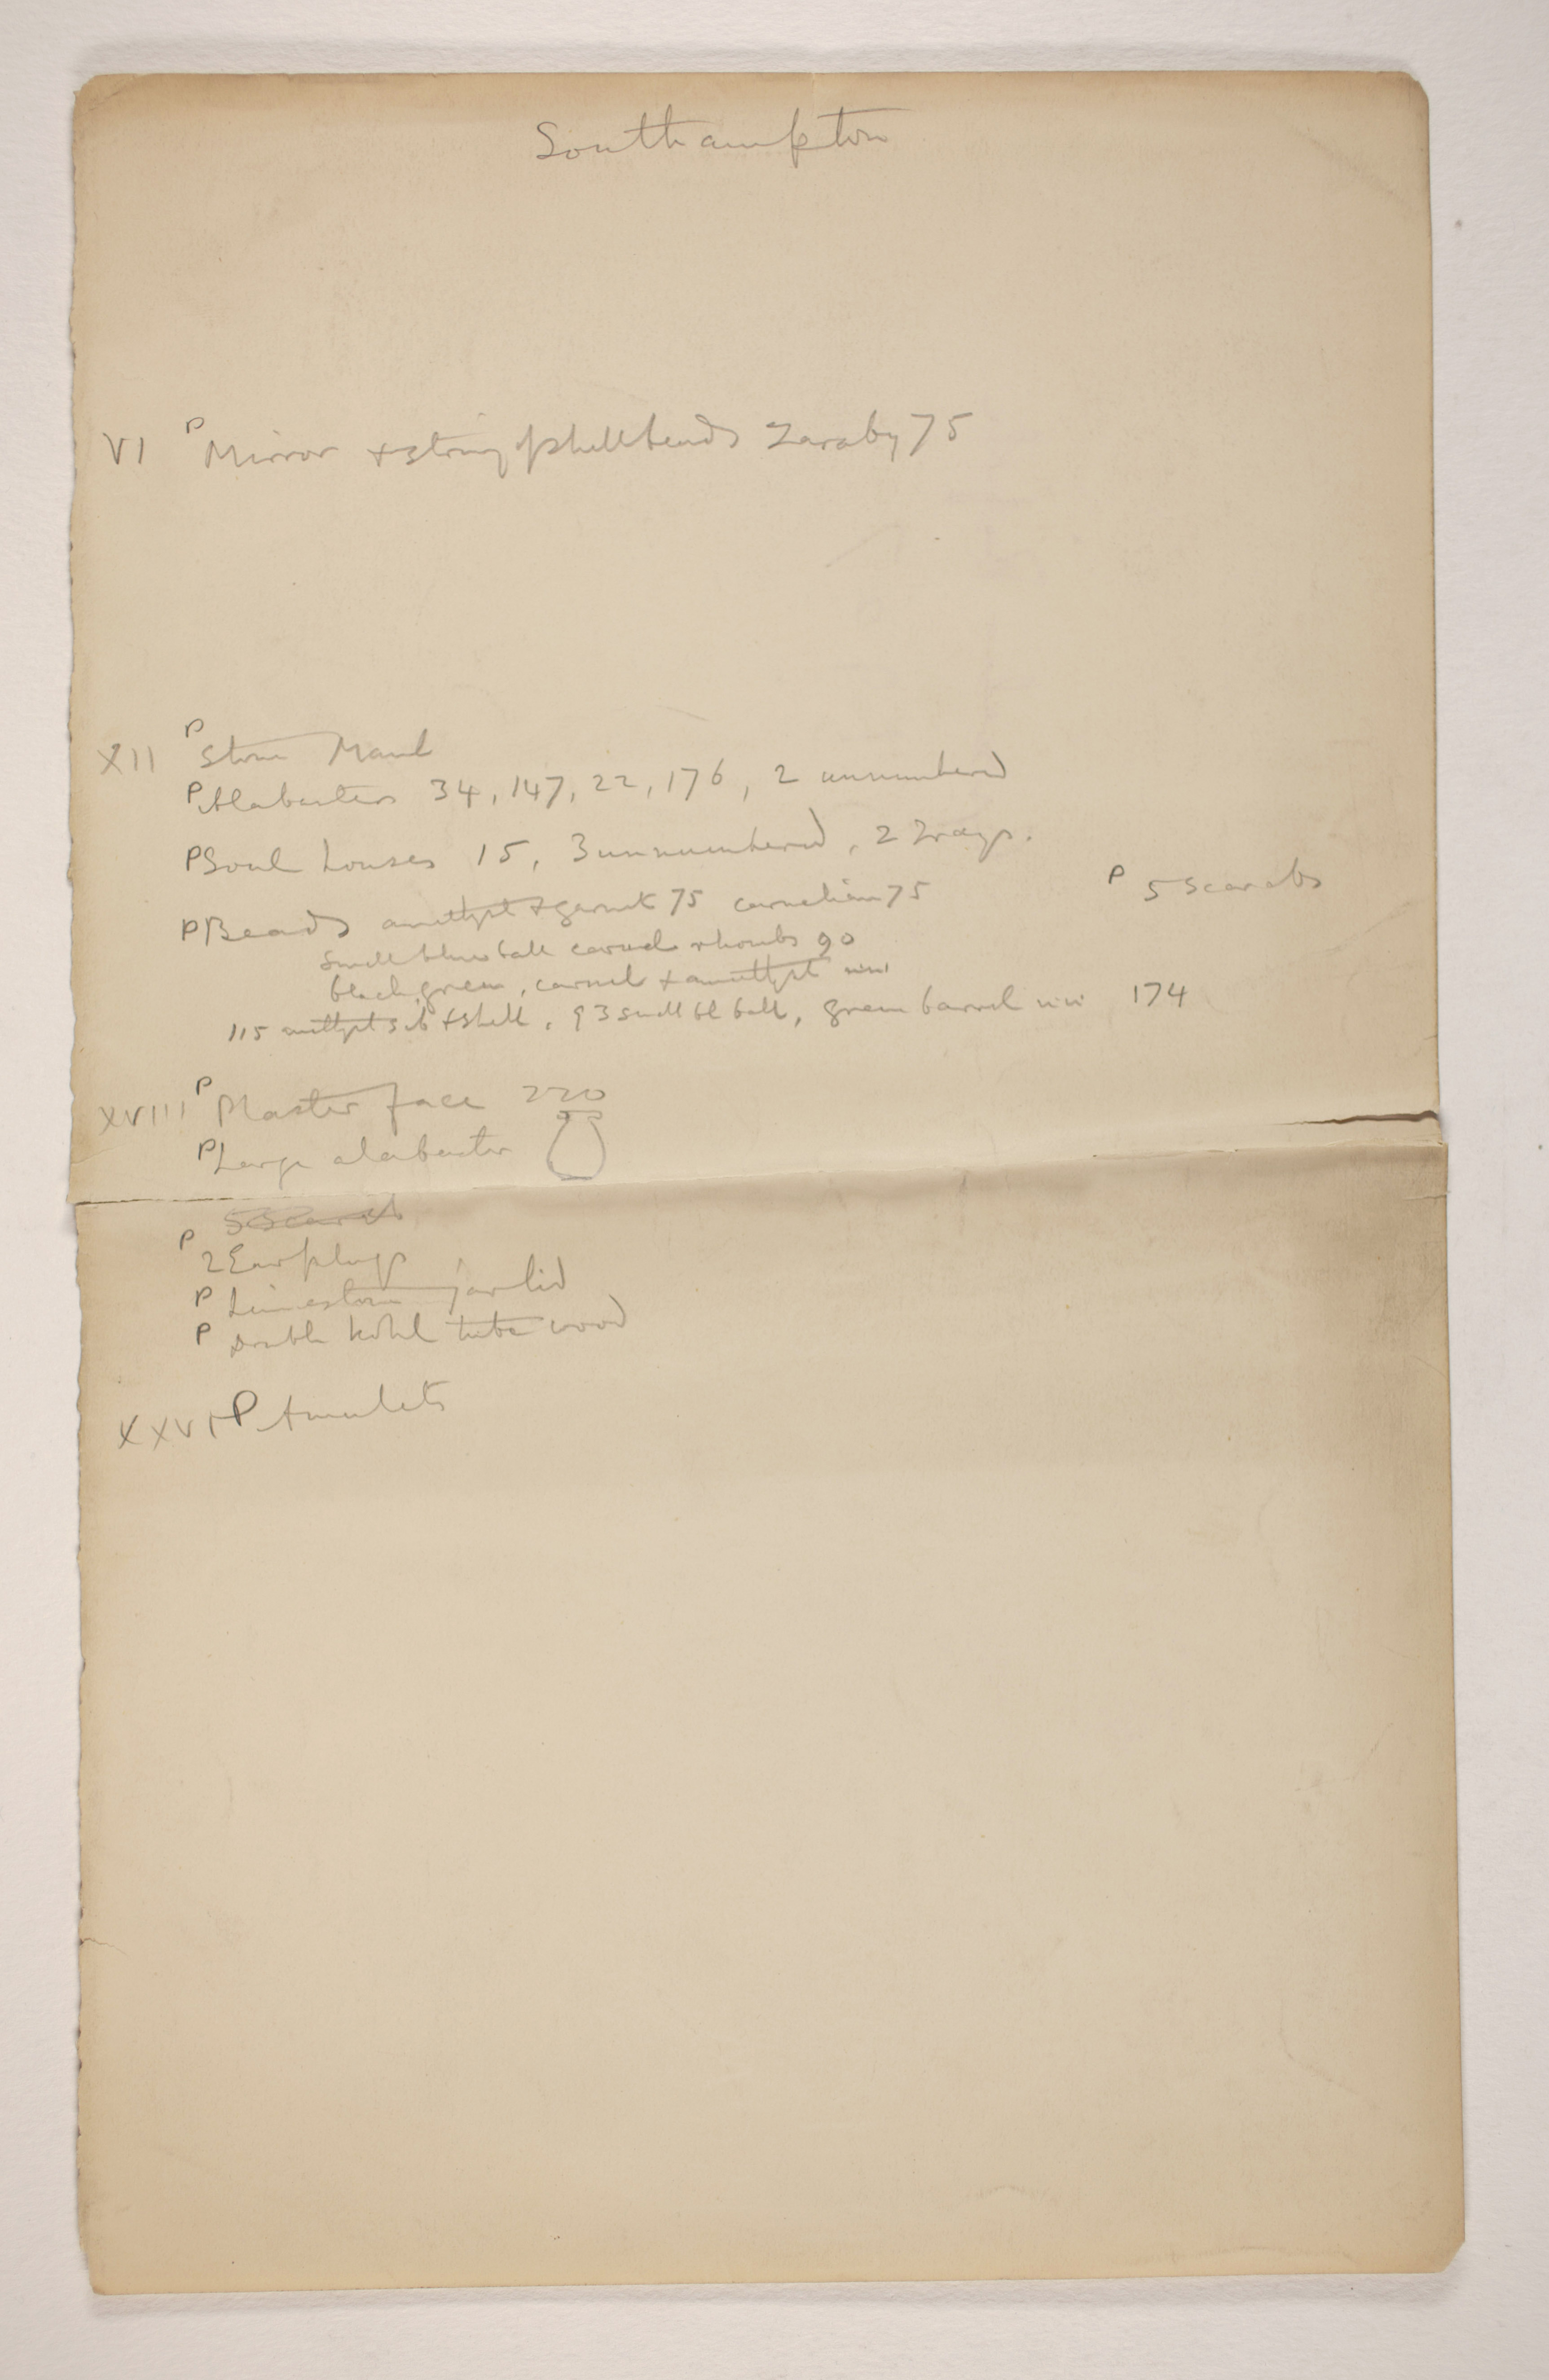 Southampton
VI P Mirror + string of shell beads Zaraby 75
XII P Stone Maul
P Alabasters 34, 147, 22, 176, 2 unnumbered
P Soul houses 15, 3 unnumbered, 2 Frags.
P 5 Scarabs
P Beads amethyst + garnet 75 carnelian 75
Small blue ball carnel rhombs 90
black, green, carnel + amethyst
115 amethyst + shell, 93 small bl ball, green barrel 174
XVIII P Plaster face 220
P Large alabaster
5 Scarab
P 2 Earplugs
P Limestone jar lid
P Double Kohl tube wood
XXVI P Amulets